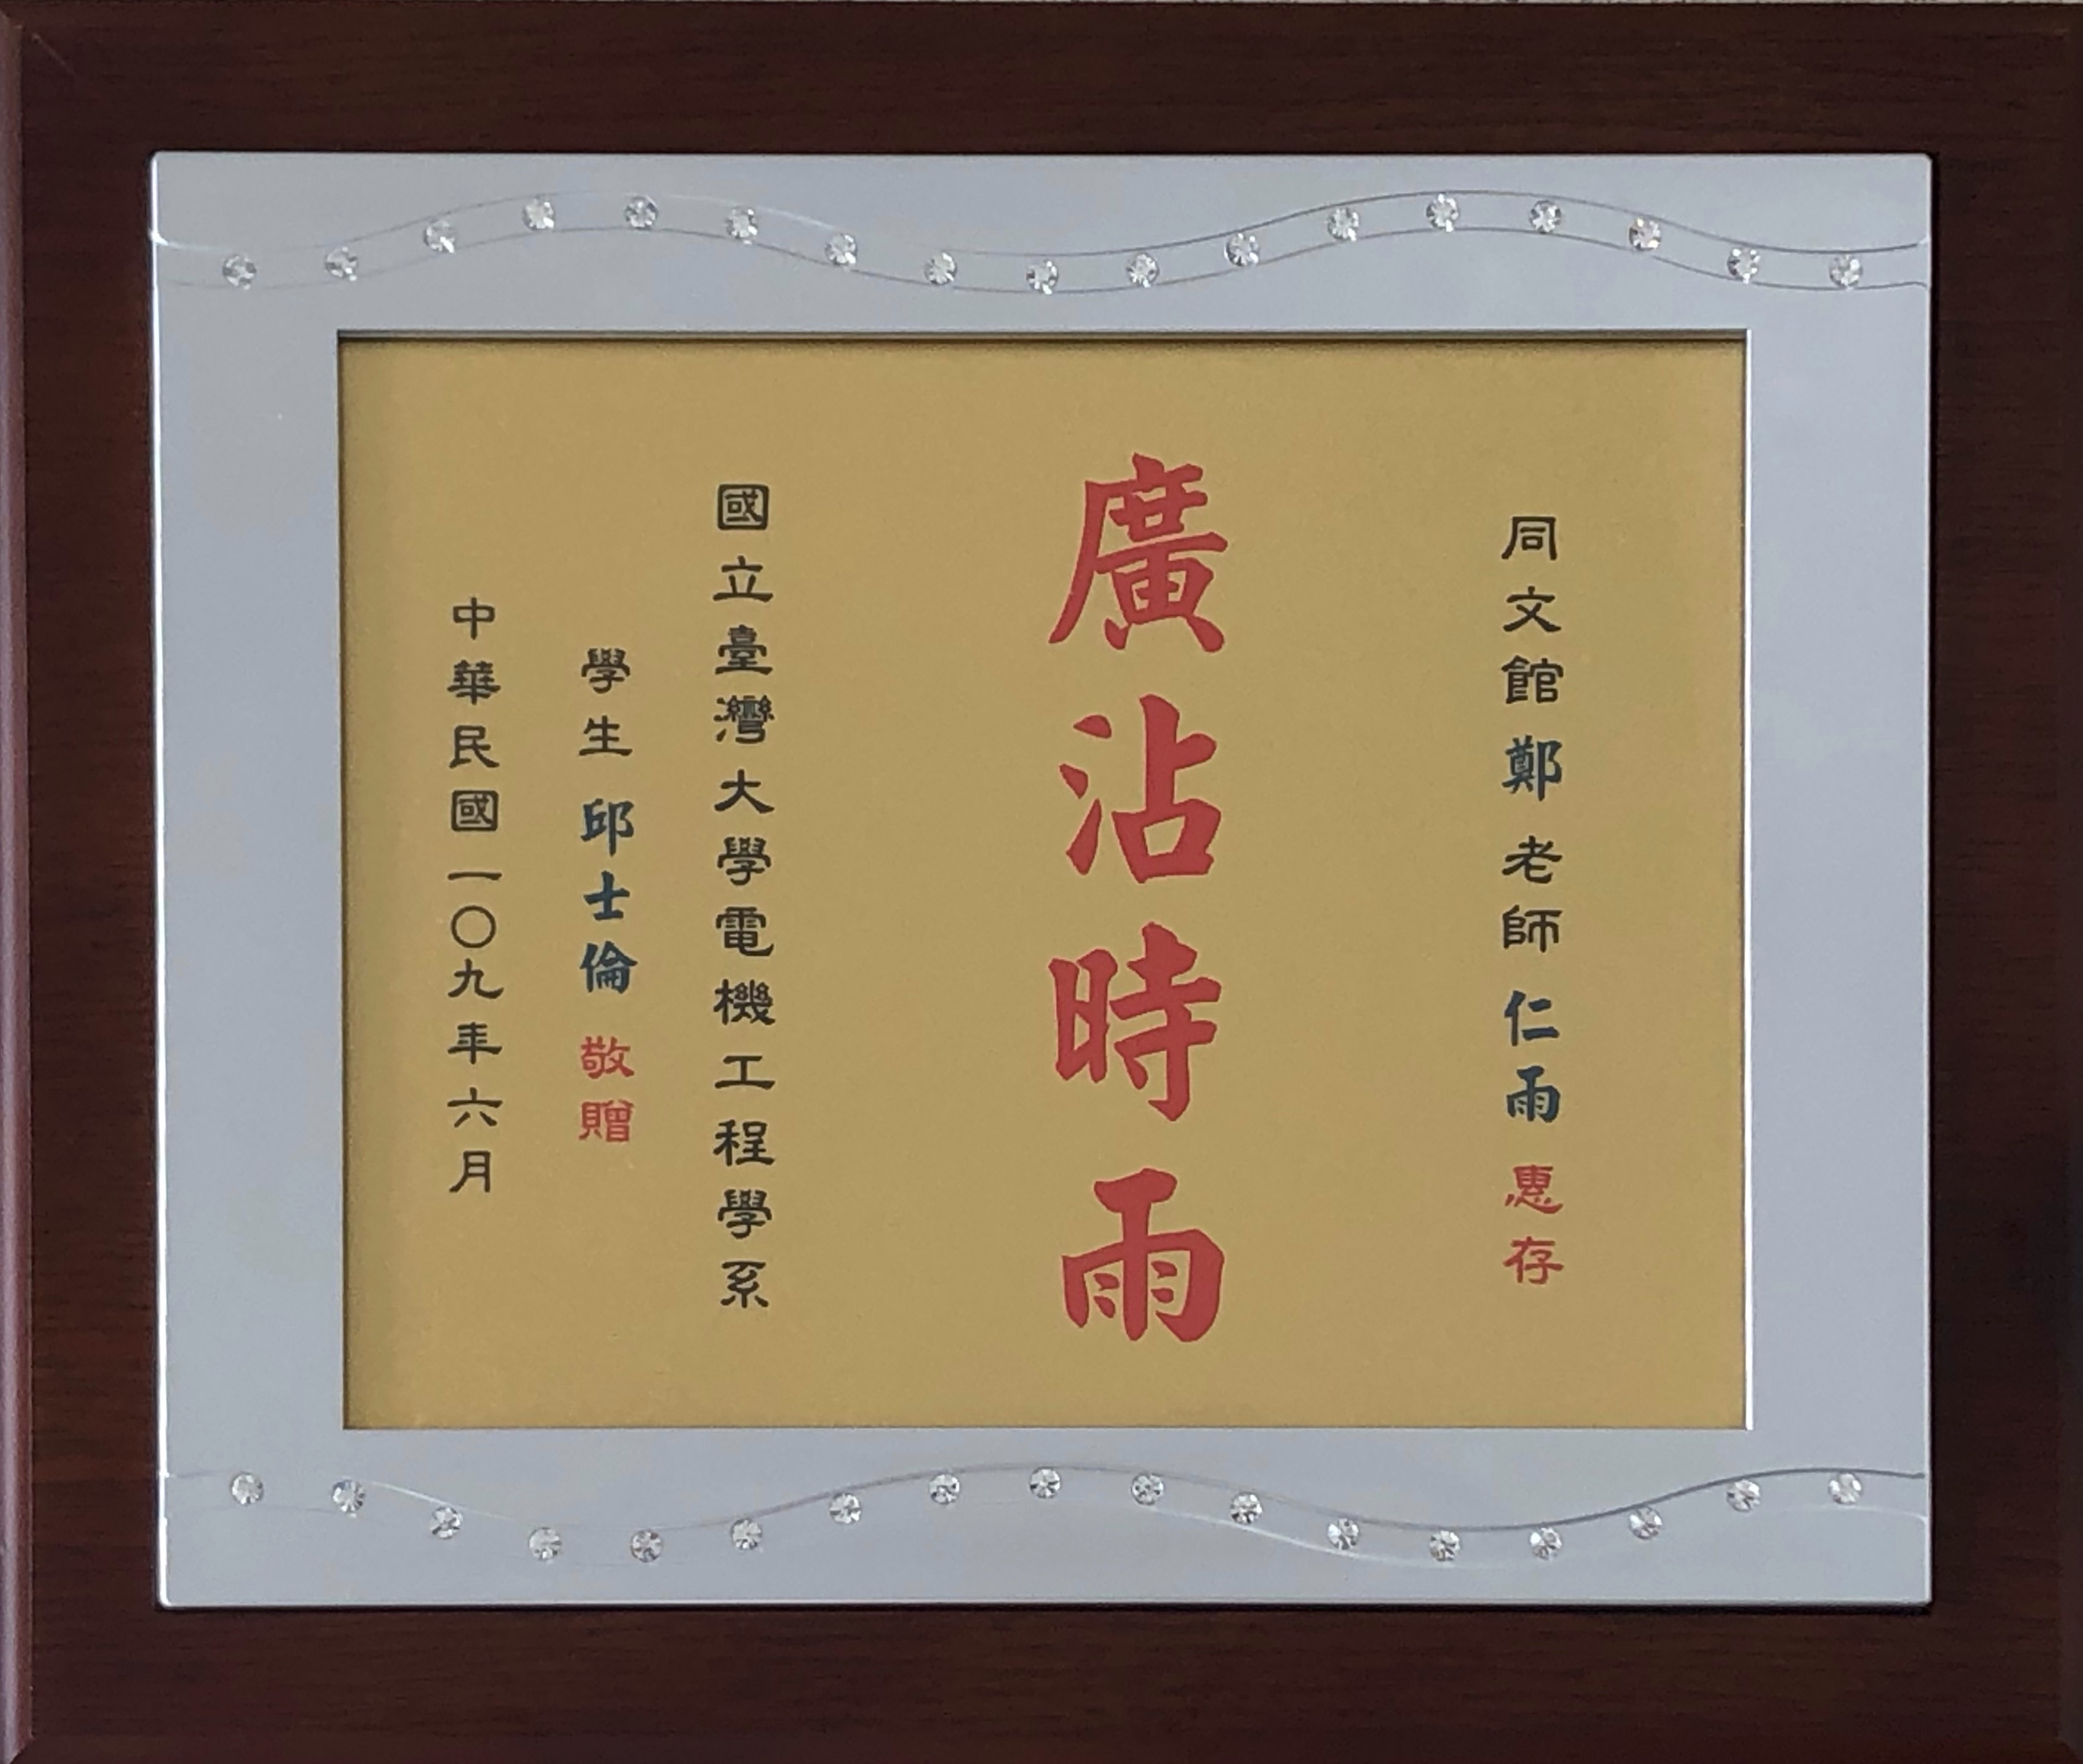 同文館 鄭 老師 仁雨 惠存
廣沾時雨
國立臺灣大學電機工程學系
學生 邱士倫 敬贈
中華民國一〇九年六月